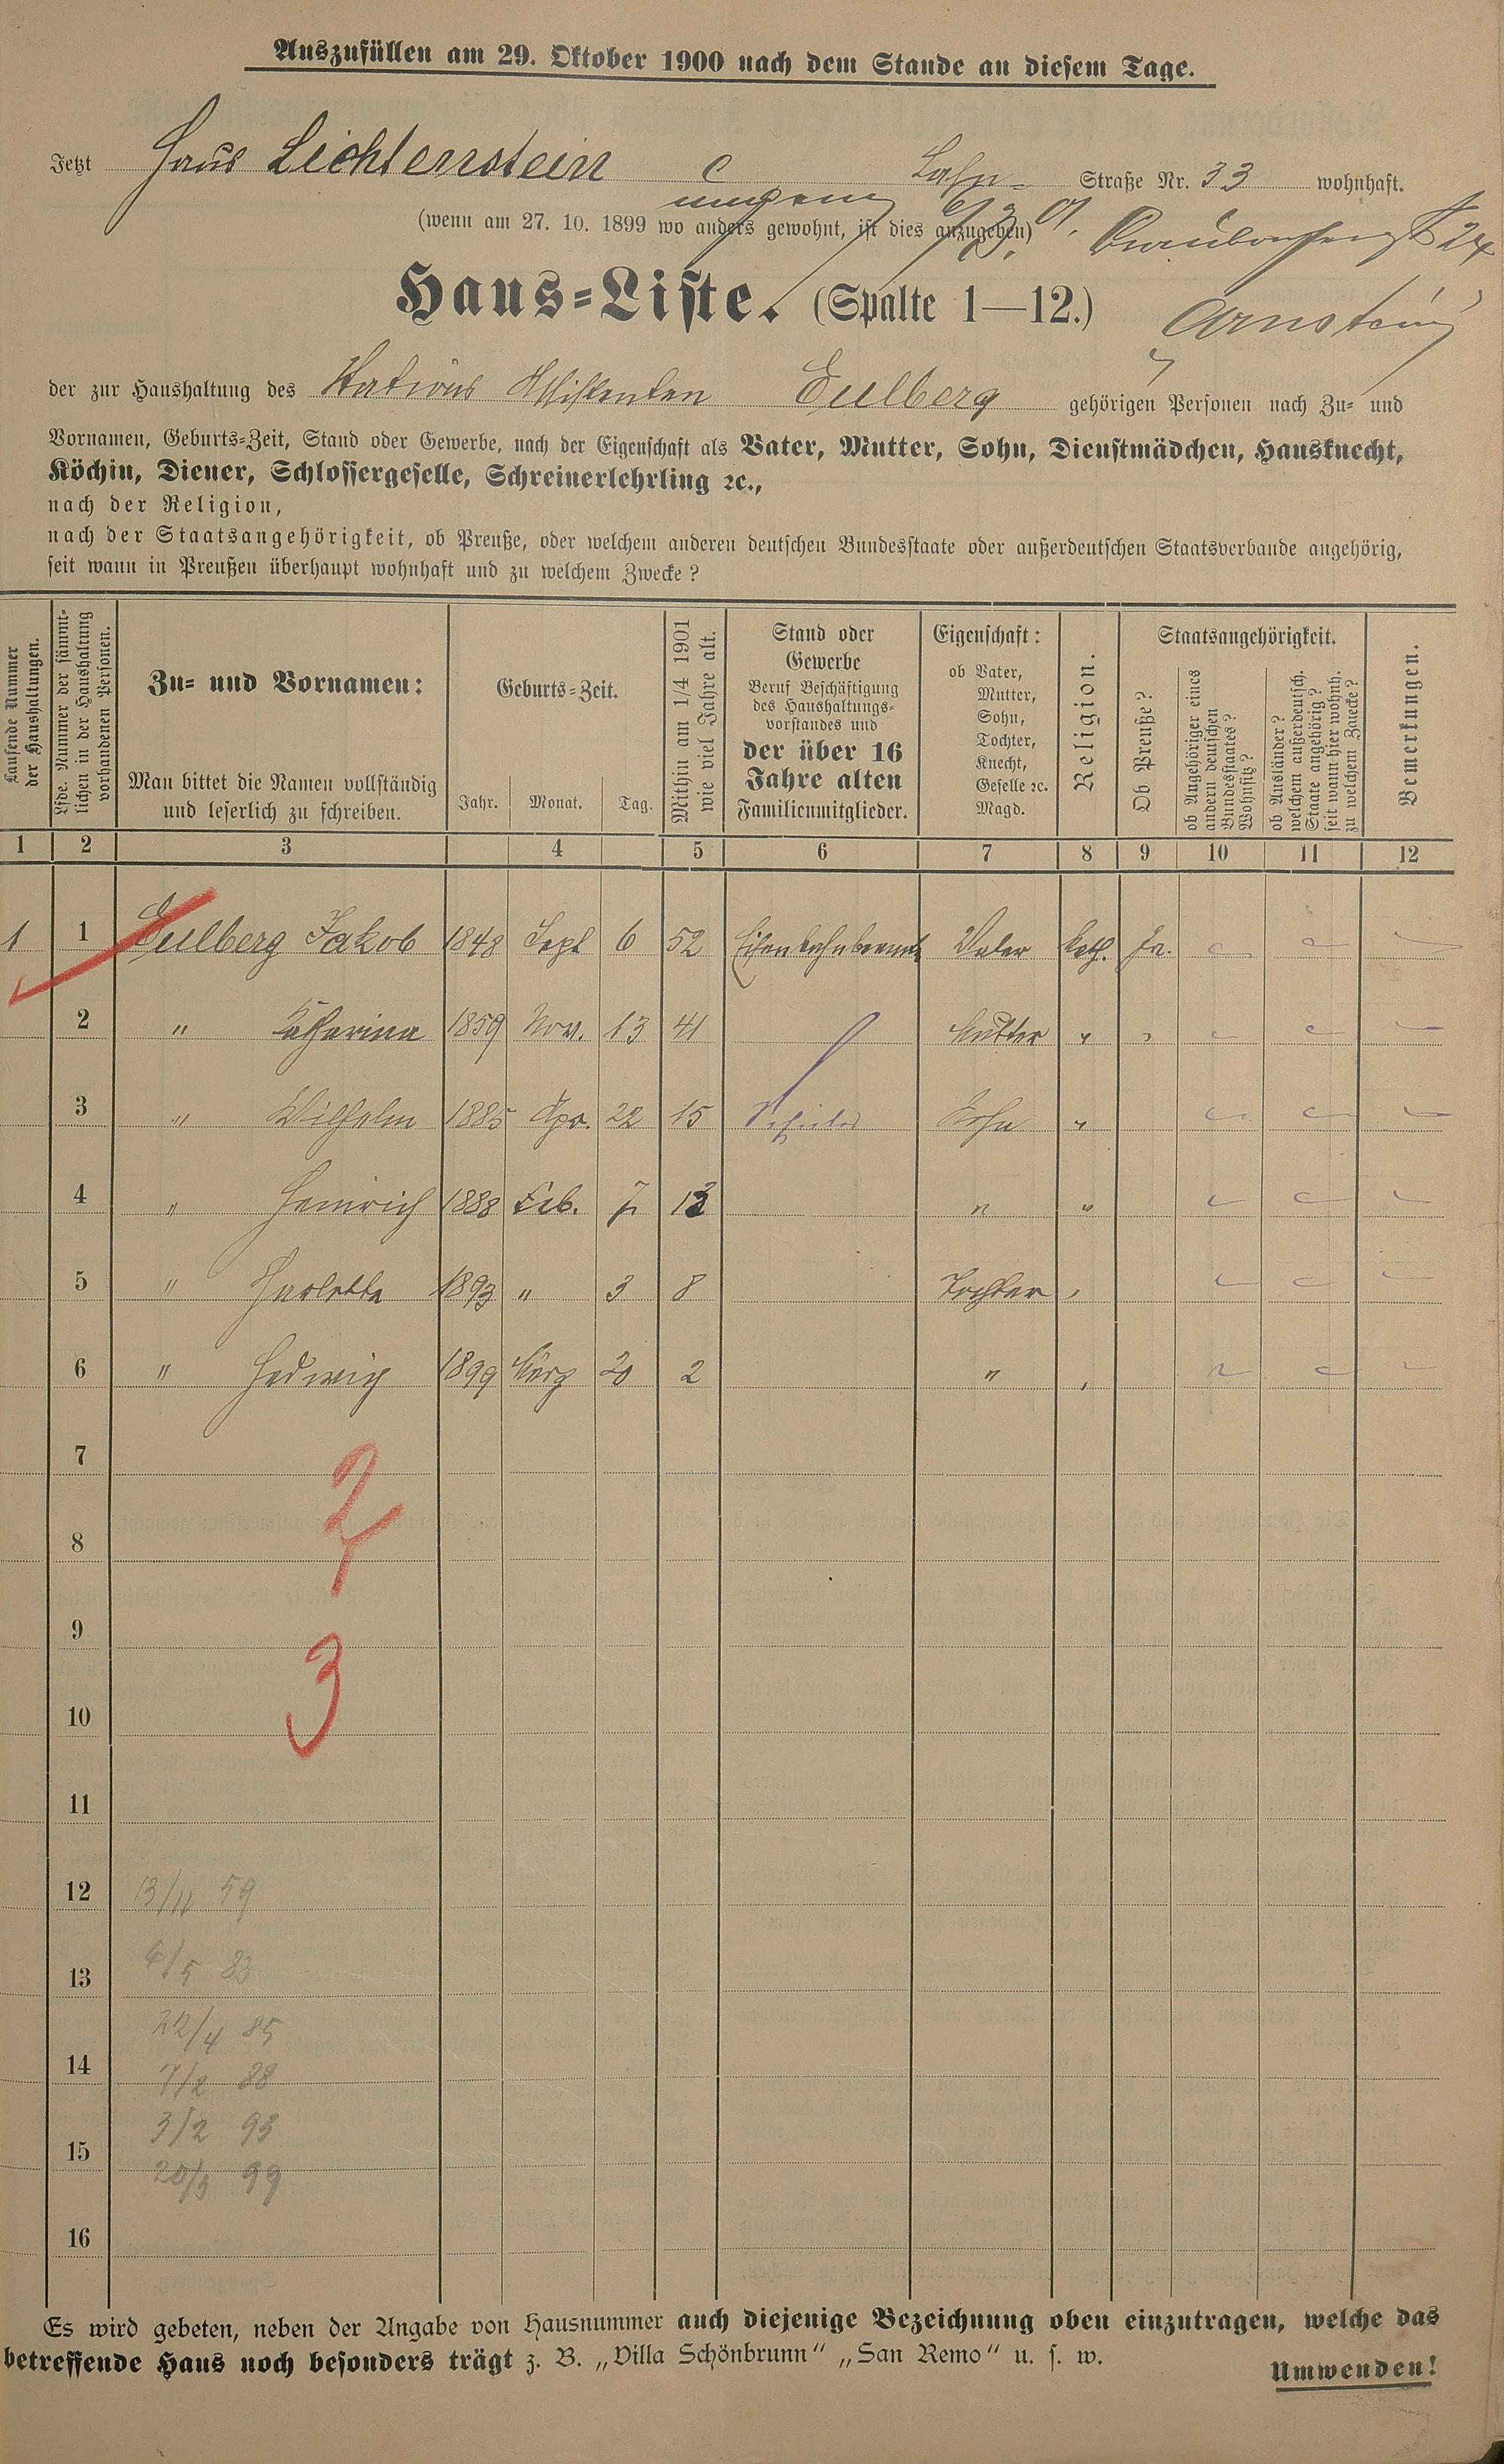 Auszufüllen am 29. Oktober 1900 nach dem Stande an diesem Tage.
Jetzt Haus Lichtenstein Lahn- Straße Nr. 33 wohnhaft.
umgezog.
(wenn am 27. 10. 1899 wo anders gewohnt, ist dies anzugeben)
24
Haus-Liste. (Spalte 1—12.)
Arnstein
der zur Haushaltung des Stations Assistenten Eulberg gehörigen Personen nach Zu- und
Vornamen, Geburts-Zeit, Stand oder Gewerbe, nach der Eigenschaft als Vater, Mutter, Sohn, Dienstmädchen, Hausknecht,
Köchin, Diener, Schlossergeselle, Schreinerlehrling ꝛc.,
nach der Religion,
nach der Staatsangehörigkeit, ob Preuße, oder welchem anderen deutschen Bundesstaate oder außerdeutschen Staatsverbande angehörig,
seit wann in Preußen überhaupt wohnhaft und zu welchem Zwecke?
Laufende Nummer
der Haushaltungen.
Lfde. Nummer der sämmt-
lichen in der Haushaltung
vorhandenen Personen.
Zu- und Vornamen:
Man bittet die Namen vollständig
und leserlich zu schreiben.
Geburts-Zeit.
Jahr. Monat. Tag.
Mithin am 1/4 1901
wie viel Jahre alt.
Stand oder
Gewerbe
Beruf Beschäftigung
des Haushaltungs-
vorstandes und
der über 16
Jahre alten
Familienmitglieder.
Eigenschaft:
ob Vater,
Mutter,
Sohn,
Tochter,
Knecht,
Geselle ꝛc.
Magd.
Religion.
Staatsangehörigkeit.
Ob Preuße?
ob Angehöriger eines
andern deutschen
Bundesstaates?
Wohnsitz?
ob Ausländer?
welchem außerdeutsch.
Staate angehörig?
seit wann hier wohnh.
zu welchem Zwecke?
Bemerkungen.
1 2 3 4 5 6 7 8 9 10 11 12
1 1 Eulberg Jakob 1848 Sept 6 52 Eisenbahnbeamte Vater kath. Ja.
2 " Katharina 1859 Nov. 13 41 Mutter " "
3 " Wilhelm 1885 Apr. 22 15 Schüler Sohn "
4 " Heinrich 1888 Feb. 7 13 " "
5 " 1893 " 3 8 Tochter "
6 " Hedwig 1899 März 20 2 " "
7
2
8
9
3
10
11
12 13/11 59
13 6/5 83
22/4 85
14 7/2 88
3/2 93
15 20/3 99
16
Es wird gebeten, neben der Angabe von Hausnummer auch diejenige Bezeichnung oben einzutragen, welche das
betreffende Haus noch besonders trägt z. B. „Villa Schönbrunn" „San Remo" u. s. w.
Umwenden!